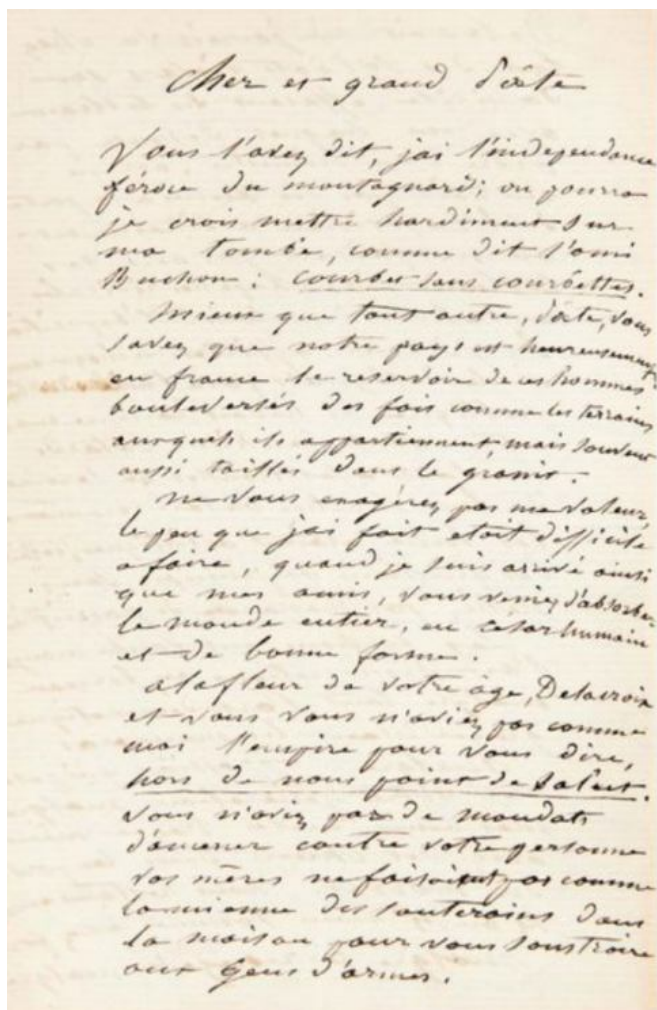 Cher et grand Poëte
Vous l'avez dit, jai l'independance
féroce du montagnard; on pourra
je crois mettre hardiment sur
ma tombe, comme dit l'ami
Buchon : Courbet sans courbettes.
Mieux que tout autre, Poëte, vous
savez que notre pays est heureusement
en france le reservoir de ces hommes
bouleversés des fois comme les terrains
auxquels ils appartiennent, mais souvent
aussi taillés dans le granit.
ne vous exagérez pas ma valeur,
le peu que jai fait etait difficile
a faire, quand je suis arrivé ainsi
que mes amis, vous veniez d'absorber
le monde entier, en César humain
et de bonne forme.
a la fleur de votre âge, Delacroix
et vous vous n'aviez pas comme
moi l'empire pour vous dire,
hors de nous point de salut.
Vous n'aviez pas de mandats
d'amener contre votre personne
vos mères ne faisaient pas comme
la mienne des souterains dans
la maison pour vous soustraire
aux Gens d'armes.